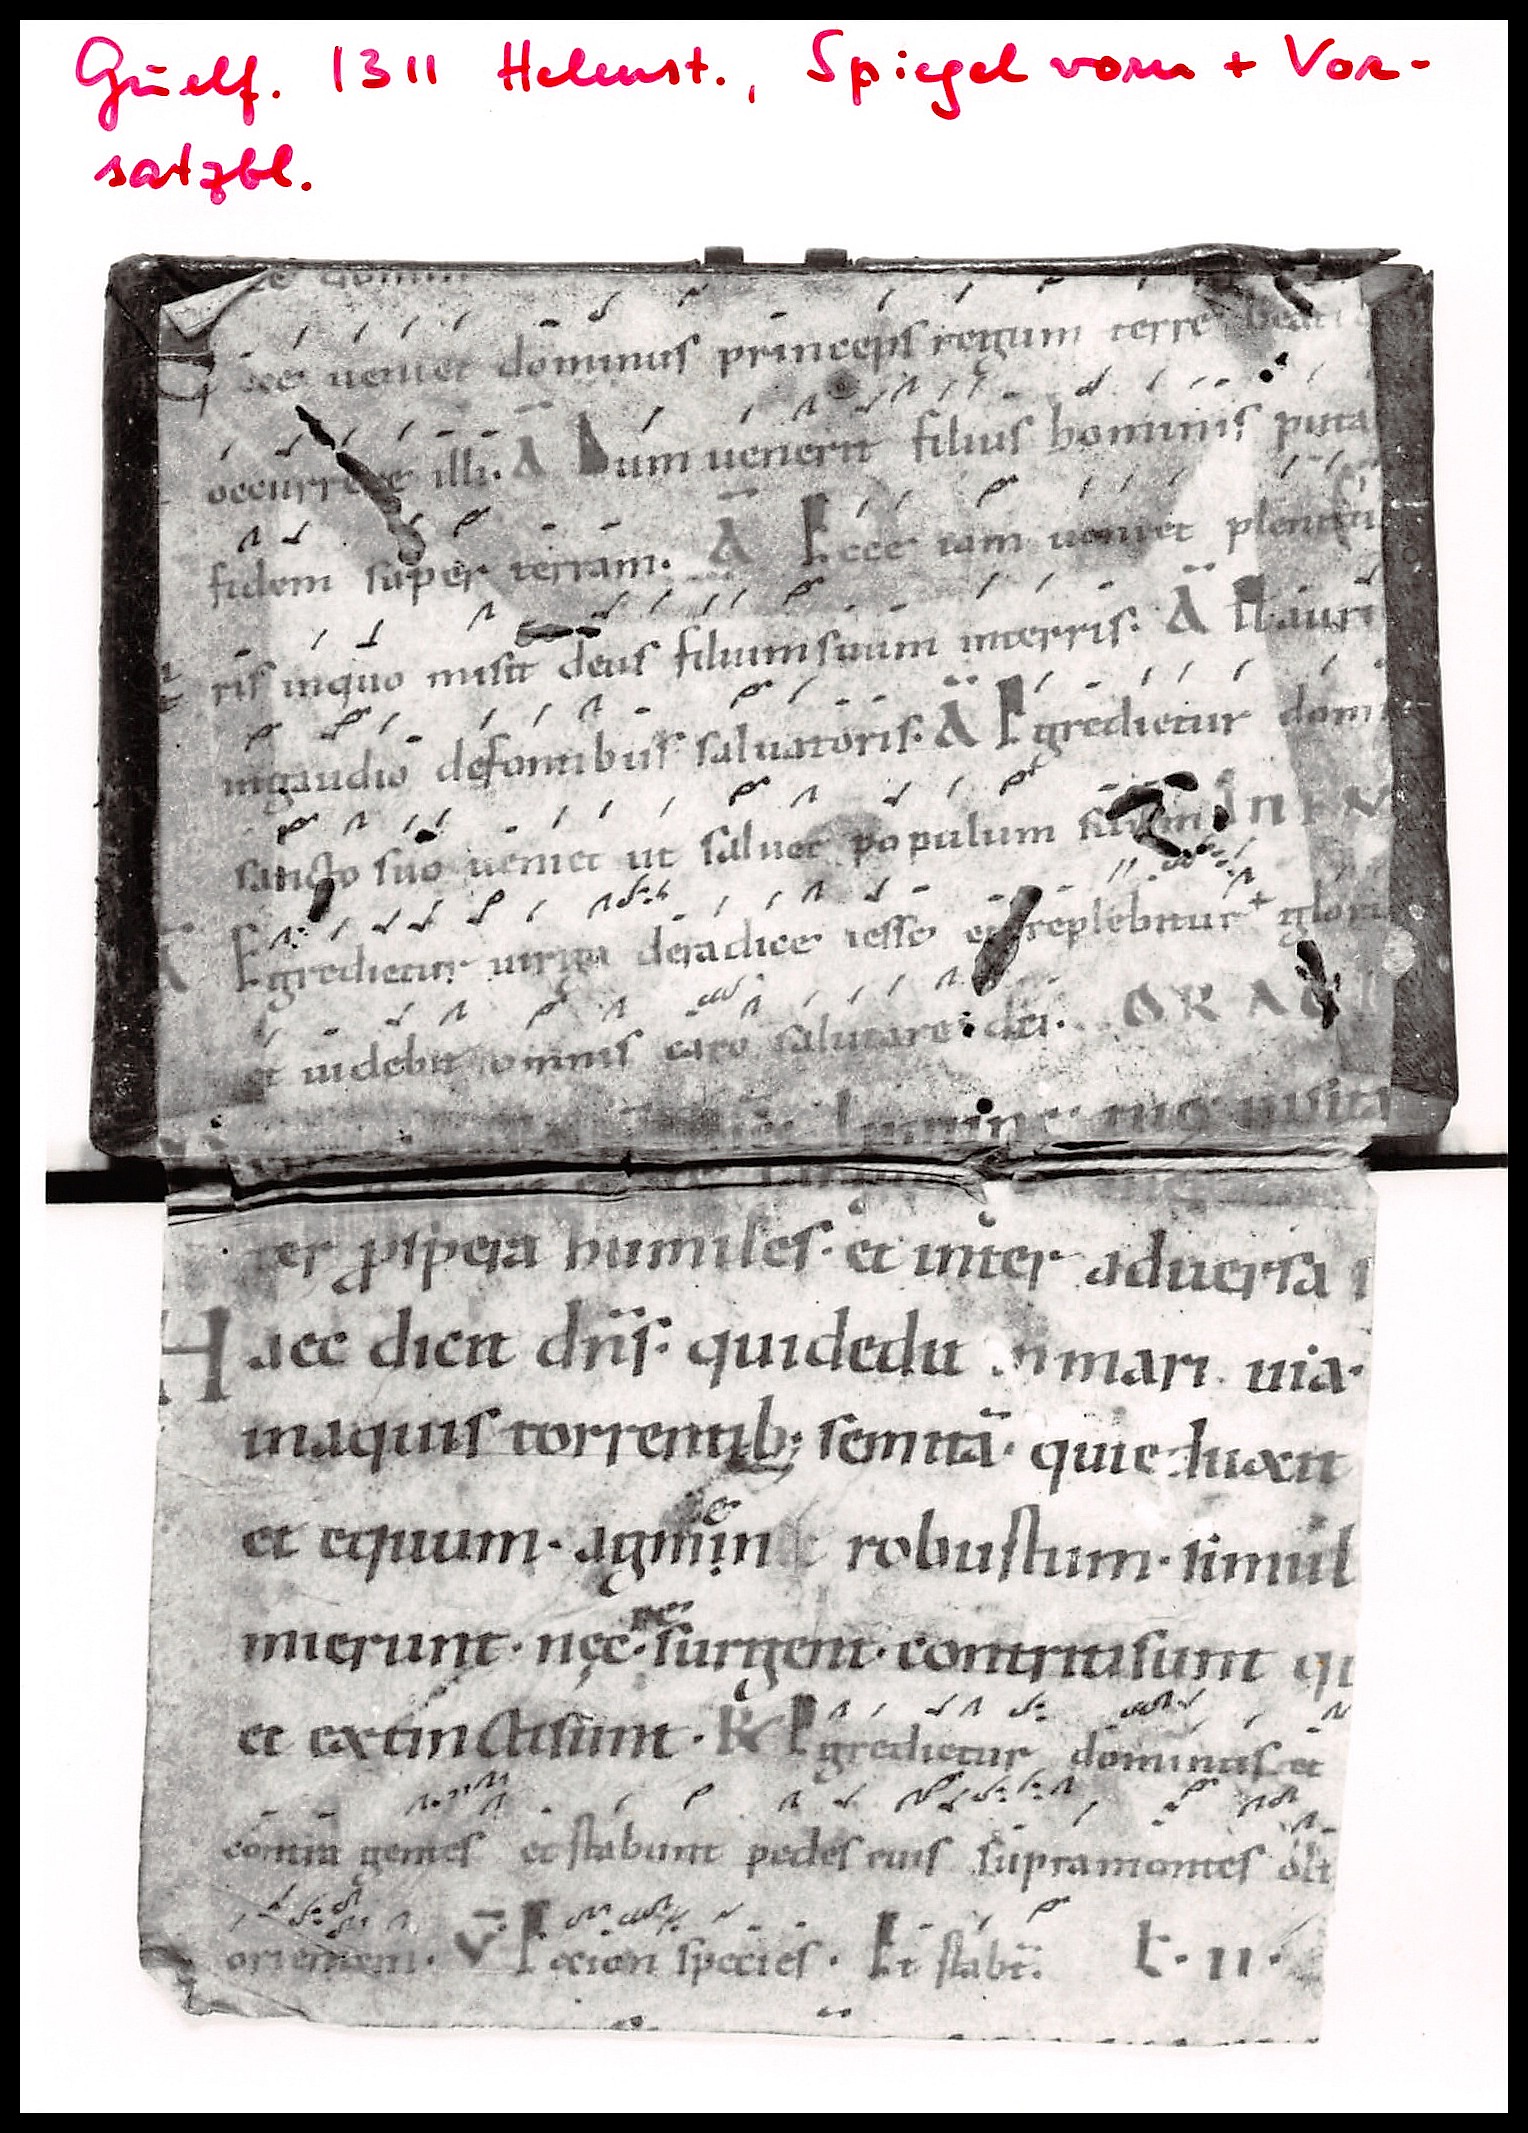 Guelf. 1311 Helmst., Spiegel vorn + Vor-
satzbl.
Ecce ueniet dominus princeps regum terre beati
occurrere illi. A Dum uenerit filius hominis putas
fidem super terram. A Ecce iam ueniet plenitu
ris inquo misit deus filium suum interris. A Hauri
ingaudio defontibus saluatoris. A Egredietur domi
sancto suo ueniet ut saluet populum suum IN EV
A Egredietur uirga deradice iesse et replebitur glori
et uidebit omnis caro salutare dei. ORATI
ter pspera humiles. et inter aduersa s
Haec dicit dn̄s. qui dedit in mari uia.
inaquis torrentib; semitā. qui eduxit
et equum. agmin robustum. simul
mierunt. nec resurgent. contriti sunt qu
et extincti sunt. R Egredietur dominus et
contra gentes et stabunt pedes eius supra montes oli
orientem. V Ex sion species. Et stab̄t. L. II.